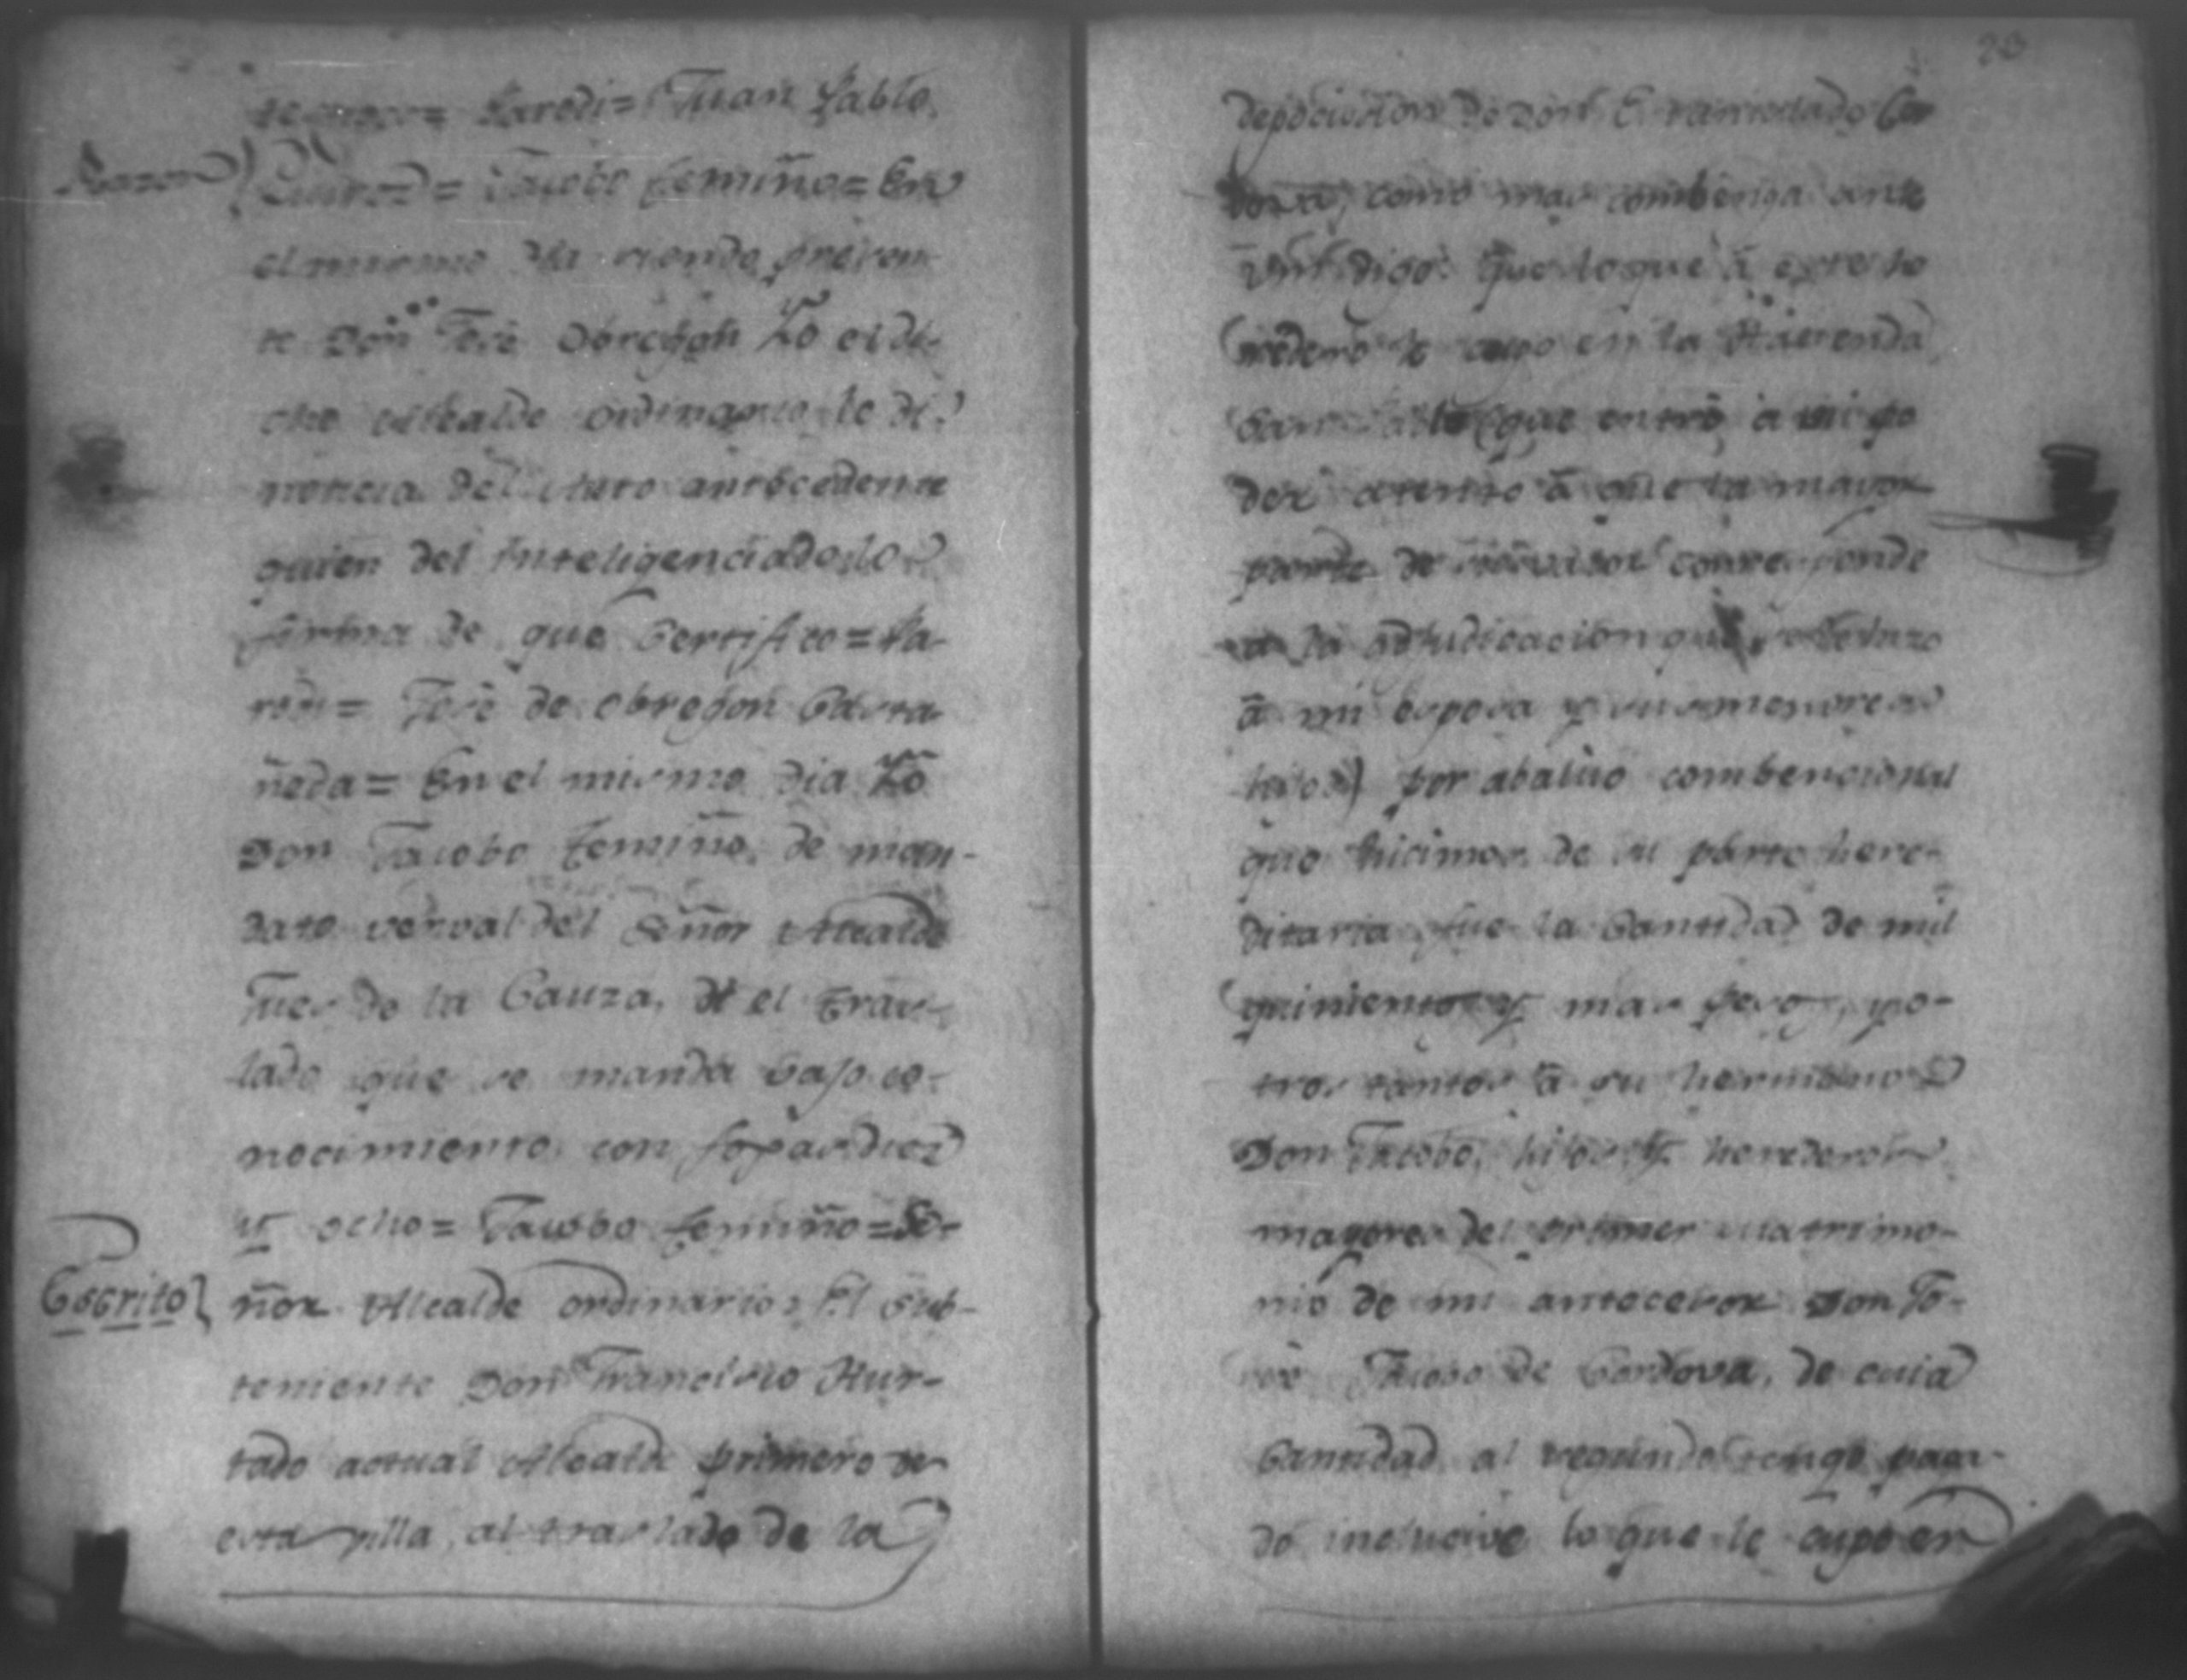 = Paredi = Juan Pablo
Razon
= Jacobo Femiño = En
el mismo dia siendo presen-
te Don José Obregon Yo el di-
cho Alcalde ordinario le di
noticia del Auto antecedente
quien del Inteligenciado lo
firma de que Certifico = Pa-
redi = José de Obregon Casta-
ñeda = En el mismo dia Yo
Don Jacobo Femiño, de man-
dato verval del Señor Alcalde
Jues de la Cauza, di el tras-
lado que se manda bajo co-
nocimiento con foxas diez
y ocho = Jacobo Femiño = Se-
Escrito
ñor Alcalde ordinario: El Sub-
teniente Don Francisco Hur-
tado actual Alcalde primero de
esta villa, al traslado de la
deposicion de Don Co-
como mas combenga ante
Vm. digo: que lo que á este
le cupo en la Hacienda
que entró á mi po-
der atento á que la mayor
parte de corresponde
á la adjudicacion que se hizo
á mi esposa y sus menores
hijos) por abaluo combencional
que hicimos de su parte here-
ditaria, fue la Cantidad de mil
quinientos y mas pesos, y o-
tros tantos á su hermano
Don Jacobo, hijos y herederos
mayores del primer matrimo-
nio de mi antecesor Don Jo-
sé Jacobo de Cordova, de cuia
Cantidad al segundo tengo paga-
do inclusive lo que le cupo en